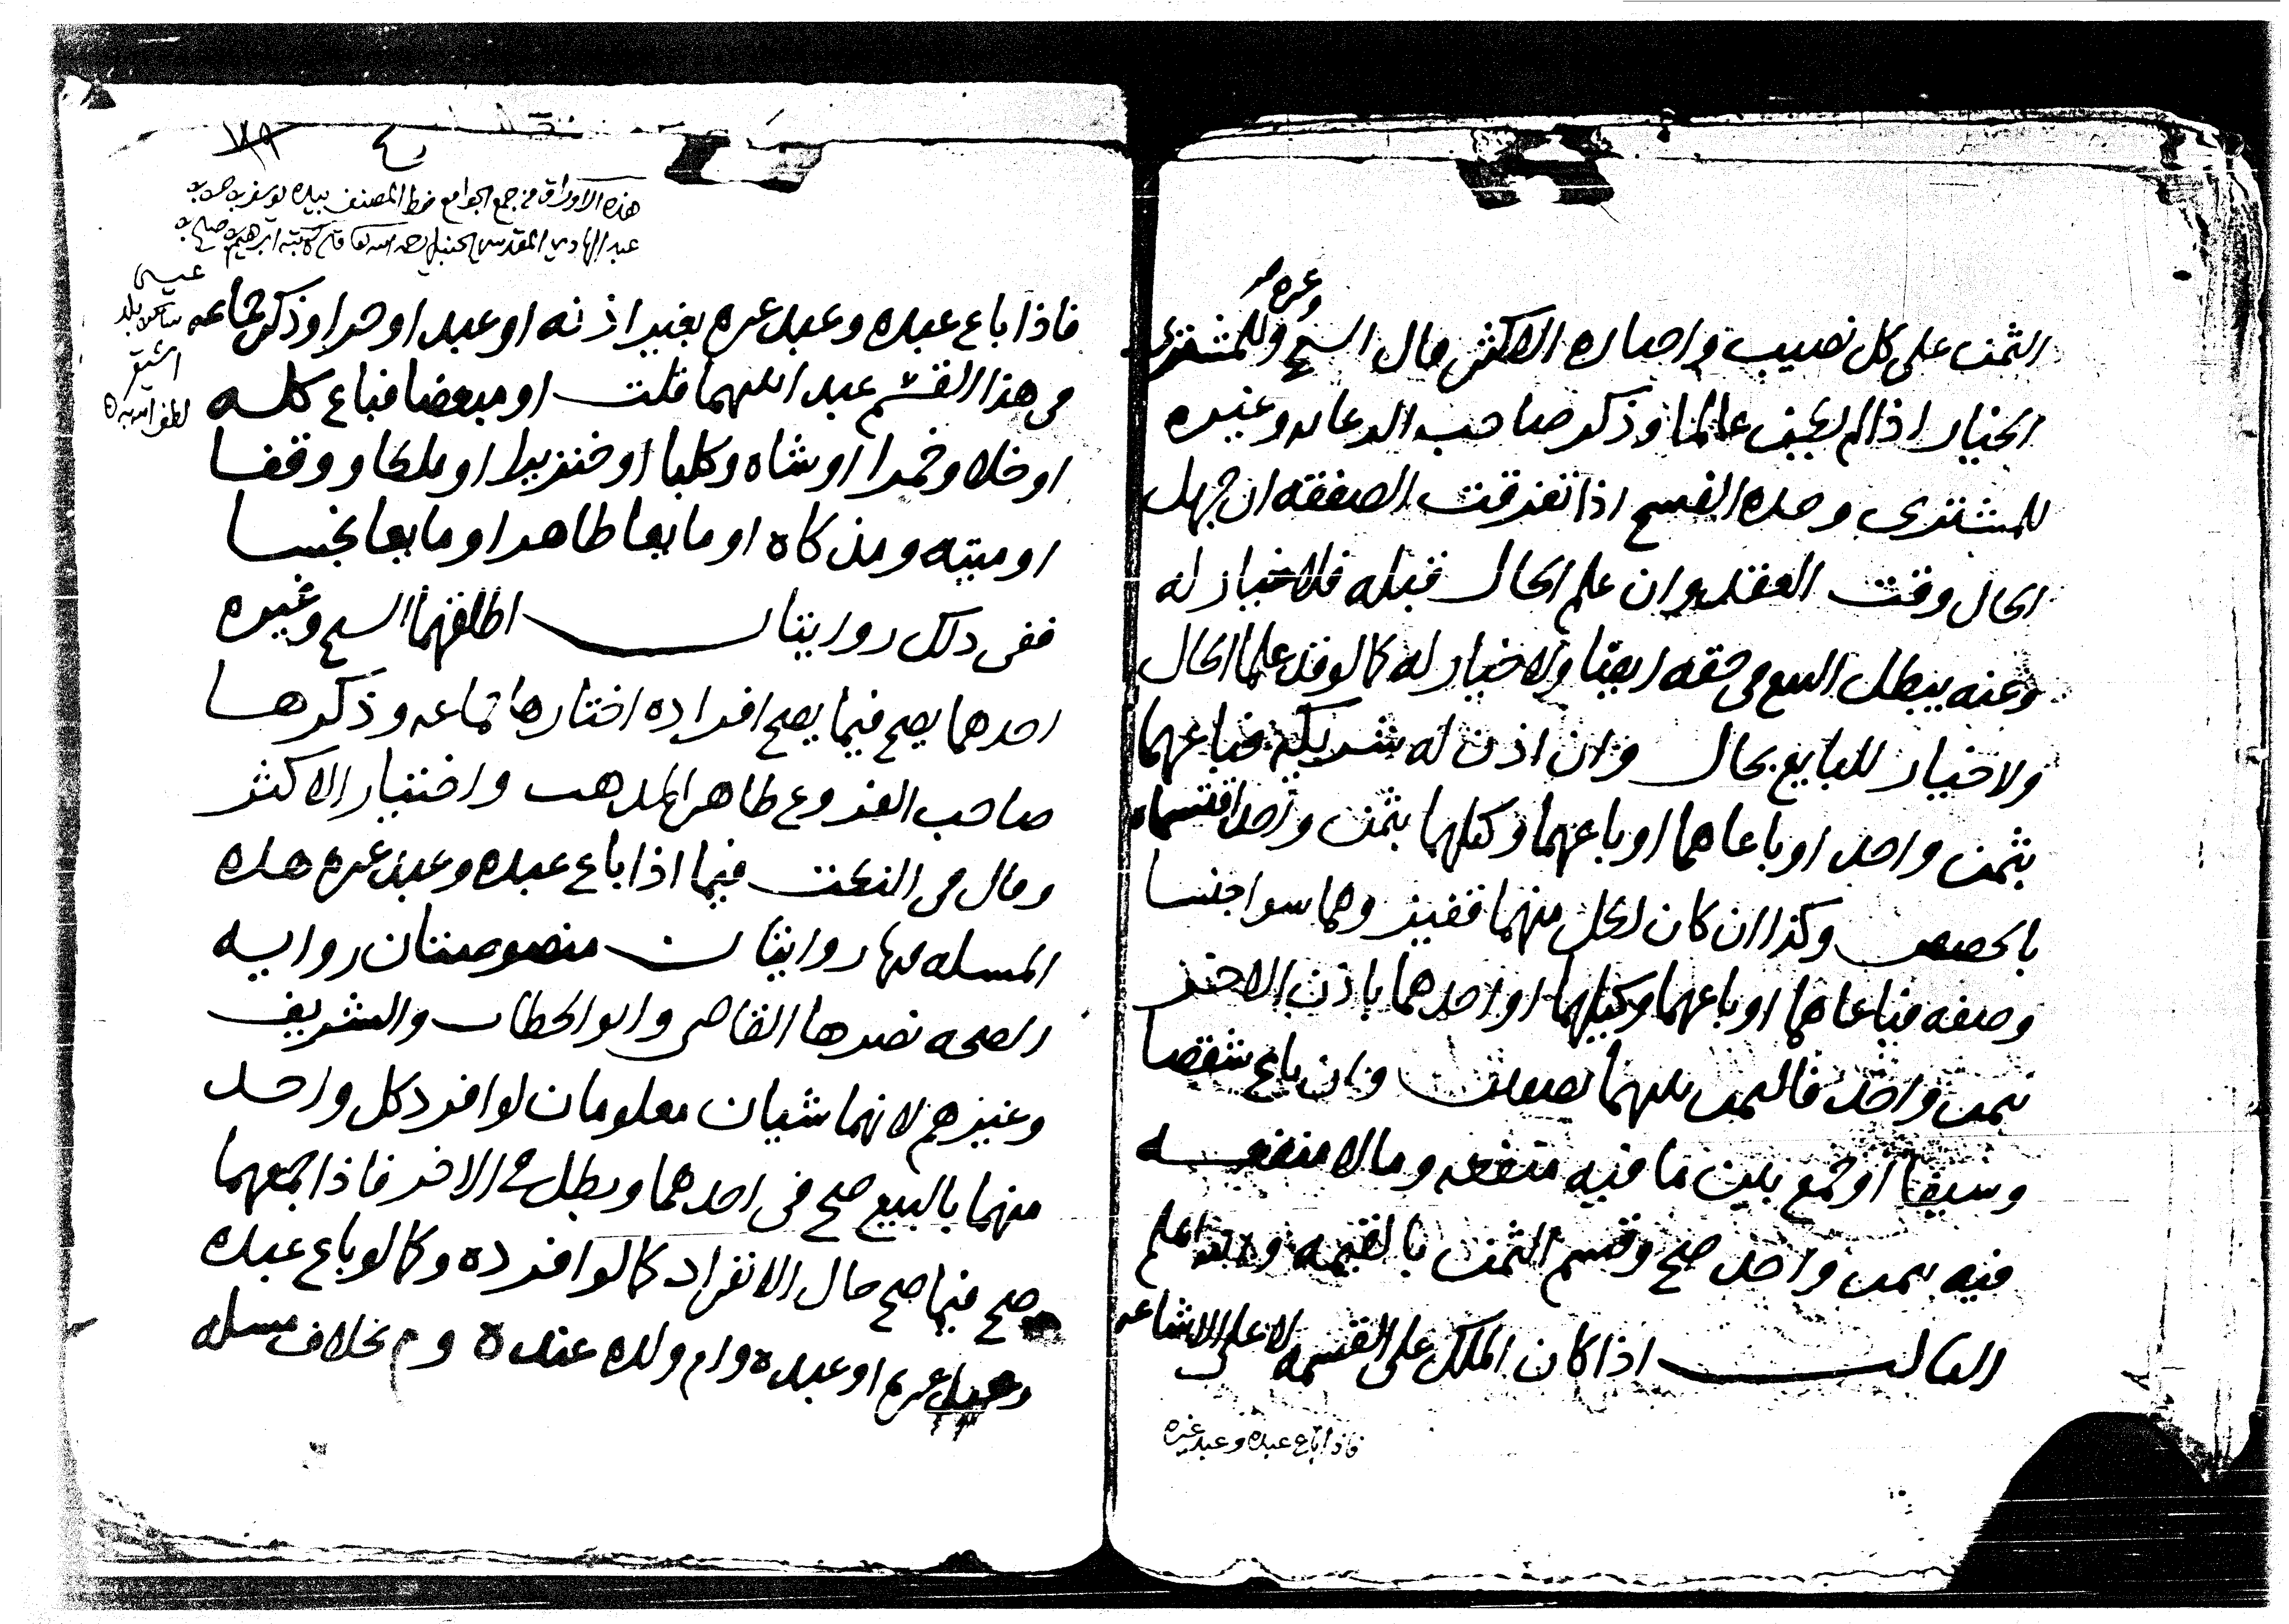 الثمن على كل نصيب واختاره الاكثر قال الشيخ وغيره وللمشترى
الخيار اذا لم يكن عالما وذكر صاحب الرعايه وغيره
للمشترى وحده الفسخ اذا تفرقت الصفقه ان جهل
الحال وقت العقد وان علم الحال قبله فلا خيار له
وعنه يبطل البيع فى حقه ايضا ولا خيار له كما لو قد علما الحال
ولا خيار للبايع بحال وان اذن له شريكه فباعهما
بثمن واحد او باعاهما او باعهما وكيلهما بثمن واحد اقتسماه
بالحصص وكذا ان كان لكل منهما قفيز وهما سوا جنسا
وصفه فباعاهما او باعهما وكيلهما او احدهما باذن الاخر
بثمن واحد فالثمن بينهما نصفان وان باع شقصا
وسيفا او جمع بين ما فيه منفعه وما لا منفعه
فيه بثمن واحد صح وقسم الثمن بالقيمه
الثالث اذا كان الملك على القسمه لا على الاشاعه
فاذا باع عبده وعبد غيره
هذه الاوراق من جمع الجوامع بخط المصنف بيده يوسف بن حسن بن
عبد الهادي المقدسي الحنبلي رحمه الله تعالى قاله كاتبه ابرهيم بن صالح بن
عيسى
بلد
اشيقر
فاذا باع عبده وعبد غيره بغير اذنه او عبدا وحرا وذكر جماعه
فى هذا القسم عبدا بينهما قلت او مبعضا فباع كله
او خلا وخمرا او شاه وكلبا او خنزيرا او ملكا ووقفا
او ميته ومذكاه او مايعا طاهرا او مايعا نجسا
ففى ذلك روايتان اطلقهما الشيخ وغيره
احدهما يصح فيما يصح افراده اختارها جماعه وذكرها
صاحب الفروع ظاهر المذهب واختيار الاكثر
وقال فى النكت فيما اذا باع عبده وعبد غيره هذه
المسله فيها روايتان منصوصتان روايه
الصحه نصرها القاضى وابو الخطاب والشريف
وغيرهم لانهما شيان معلومان لو افرد كل واحد
منهما بالبيع صح فى احدهما وبطل في الاخر فاذا جمعهما
صح فيما صح حال الانفراد كما لو افرده وكما لو باع عبده
وعبد غيره او عبده وام ولده عنده وم بخلاف مسله